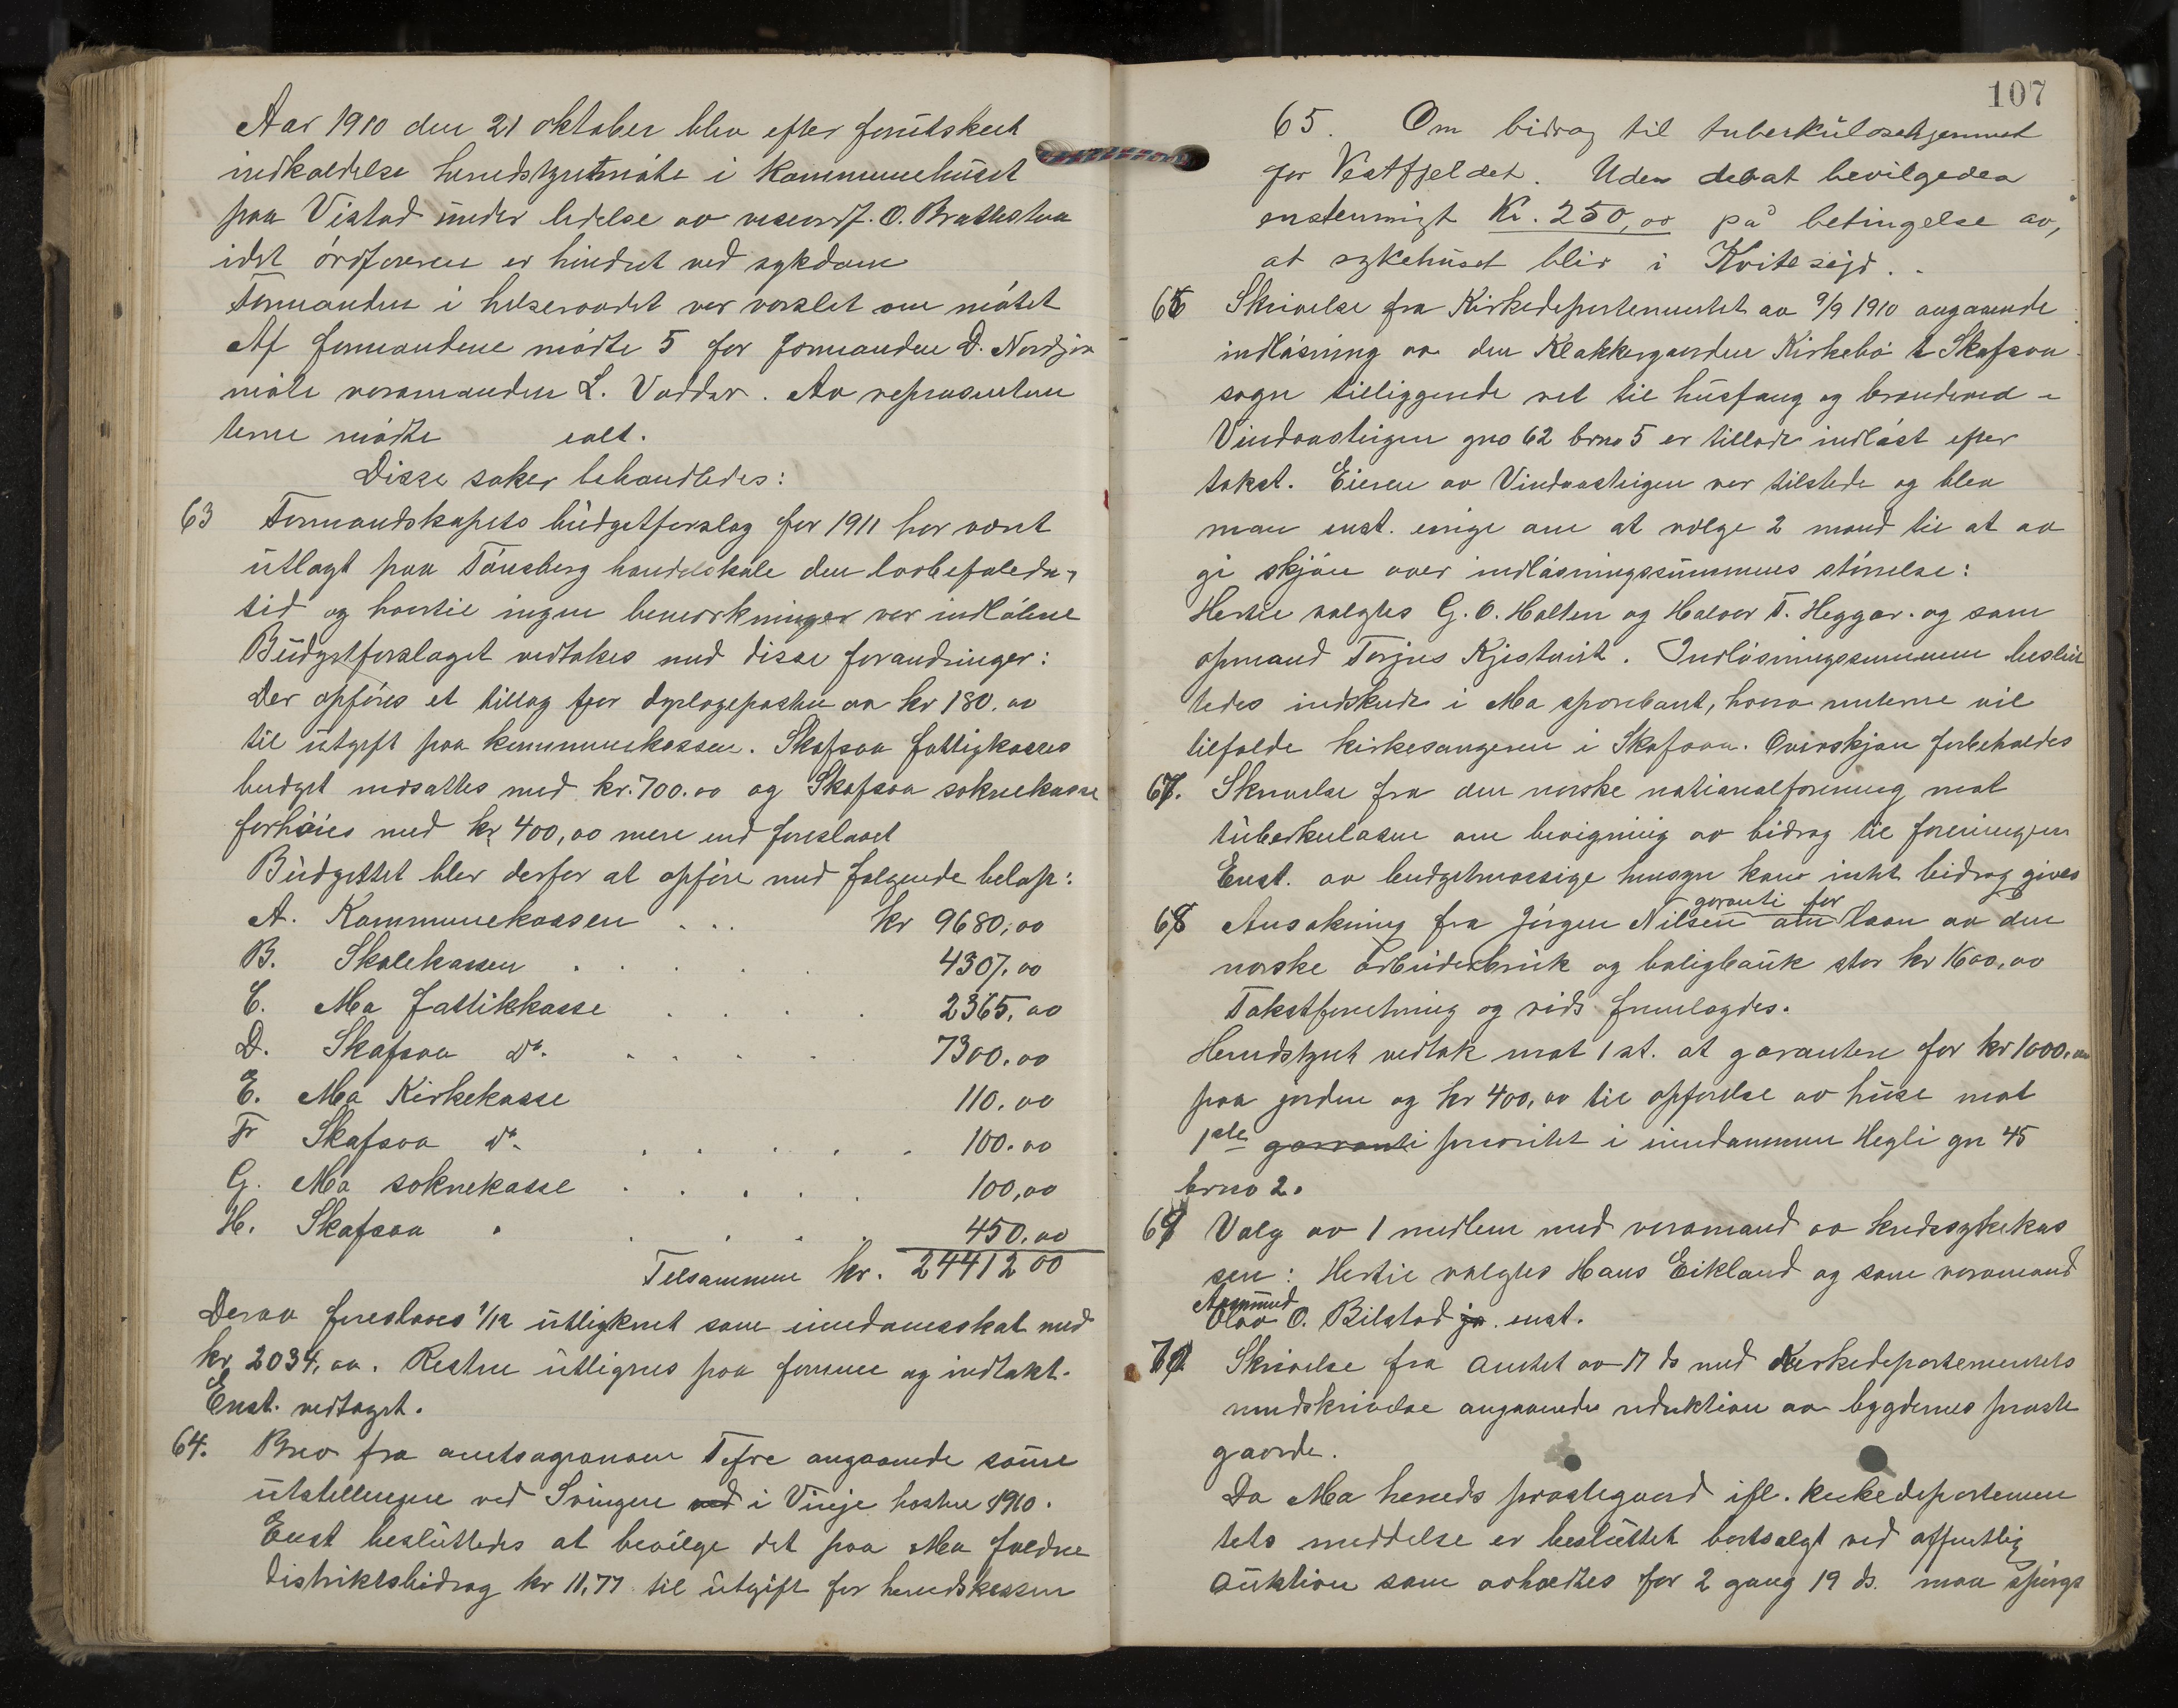 Aar 1910 den 21 oktober blev efter forutskeet
indkaldelse herredstyretsmöte i kommunehuset
paa Vistad under ledelse av viseordf. O. Brattestaa
idet ördföreren er hindret ved sykdom
Formanden i helseraadet var varslet om mötet
Af formændene mödte 5 for formanden D. Nordjor
möte varamanden L. Vaddar. Av repræsentan
terne mödte ialt.
Disse saker behandledes:
63 Formandskapets budgetforslag for 1911 har vært
utlagt paa Tönsberg handelskole den lovbefalede
tid og hvertil ingen bemerkninger var indlöbne
Budgetforslaget vedtakes med disse forandringer:
Der opföres et tillæg for dyrlægeposten av kr 180.00
til utgift paa kommunekassen. Skafsaa fattigkasses
budget nedsattes med kr. 700.00 og Skafsaa soknekasse
forhöies med kr 400,00 mere end foreslaaet
Budgettet blev derfor at opföre med følgende beløp:
A. Kommunekassen . . . kr 9680,00
B. Skolekassen . . . . . 4307.00
C. Mo fattikkasse . . . . 2365,00
D. Skafsaa do. . . . . 7300.00
E. Mo Kirkekasse 110.00
F Skafsaa do. . . . . . 100.00
G. Mo soknekasse . . . . . 100,00
H. Skafsaa " . . . . 450.00
Tilsammen kr. 24412 00
Derav foreslaaes 1/12 utlignet som eiendomsskat med
kr 2034,00. Resten utlignes paa formue og indtækt.
Enst. vedtaget.
64. Brev fra amtsagronom Tefre angaaende saue
utstellingen ved Svingen ved i Vinje hösten 1910.
Enst besluttedes at bevilge det paa Mo faldne
distriktsbidrag kr 11,77 til utgift for herredskassen
107
65. Om bidrag til tuberkulosehjemmet
for Vestfjeldet. Uden debat bevilgedes
enstemmigt Kr. 250,00 på betingelse av,
at sykehuset blir i Kvitesejd.
66 Skrivelse fra Kirkedepartementet av 9/9 1910 angaaende
indlösning av den Klokkergaarden Kirkebö i Skafsaa
sogn tilliggende ret til husfang og brændeved i
Vindaasteigen gno 62 brno 5 er tilladt indlöst efter
takst. Eieren av Vindaasteigen var tilstede og blev
man enst. enige om at vælge 2 mænd til at av
gi skjön over indlösningssummens störrelse:
Hertil valgtes G. O. Holten og Halvor T. Heggar. og som
opmand Torjus Kjestveit. Indlösningssummen beslut
tedes indskudt i Mo sparebank, hvorav renterne vil
tilfalde kirkesangeren i Skafsaa. Overskjön forbeholdes
67. Skrivelse fra den norske nationalforening mot
tuberkulosen om bevigning av bidrag til foreningen
Enst. av budgetmæssige hensyn kan intet bidrag gives
68 Ansökning fra Jörgen Nilsen om garanti for laan av den
norske arbeiderbruk og boligbank stor kr 1600,00
Takstforretning og vids fremlagdes.
Herredstyret vedtok mot 1 st. at garantere for kr 1000,00
paa jorden og kr 400,00 til opförelse av huse mot
1ste garranti prioritet i eiendommen Hegli gn 45
brno 2.
69 Valg av 1 medlem med varamand av kredssykekas
sen: Hertil valgtes Hans Eikland og som varamand
Aasmund
Olav O. Bilstad jr. enst.
70 Skrivelse fra amtet av 17 ds med Kirkedepartementets
rundskrivelse angaaende reduktion av bygdernes preste
gaarde.
Da Mo herreds prestegaard ifl. kirkedepartemen
tets meddelse er besluttet bortsalgt ved offentlig
auktion som avholdtes for 2 gang 19 ds. maa spörgs